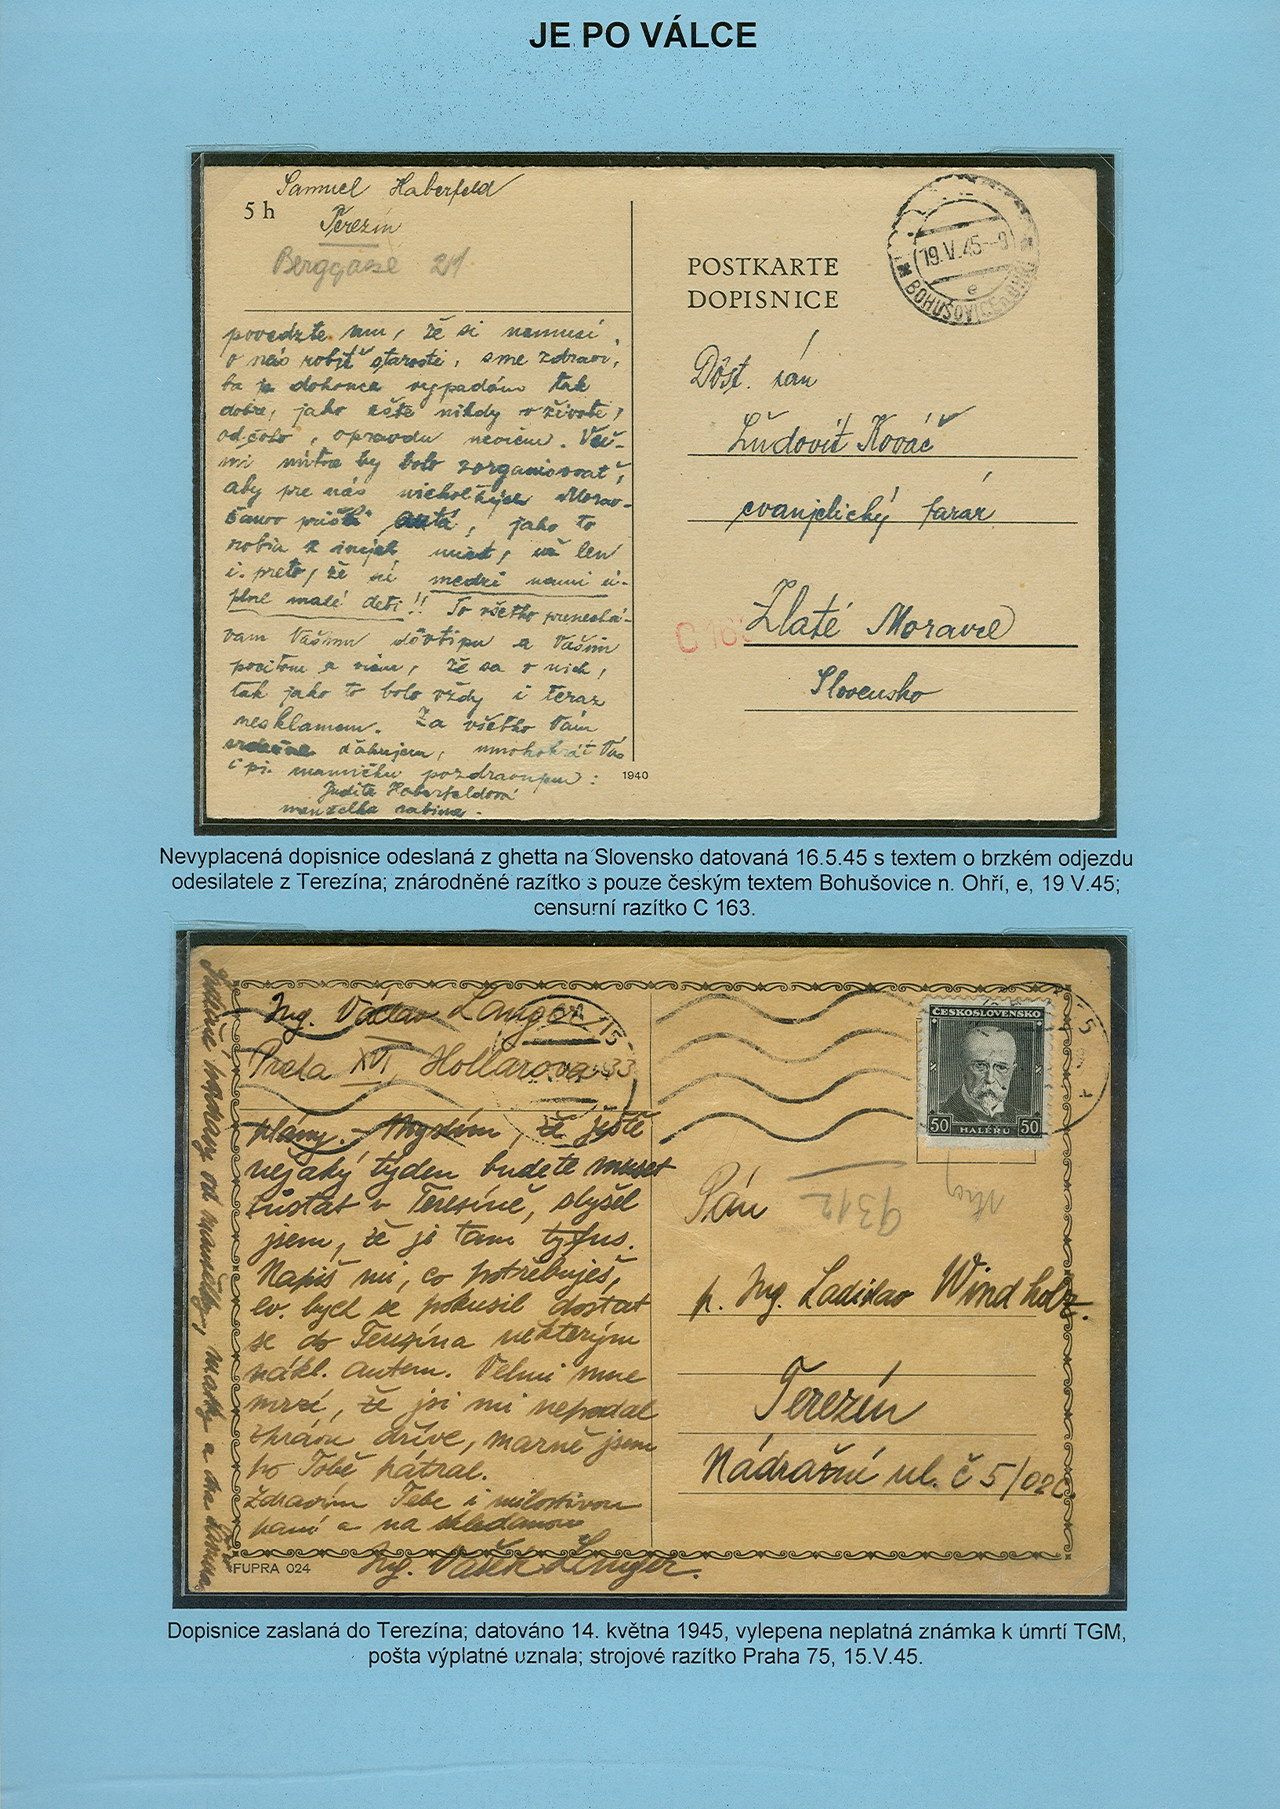 JE PO VÁLCE
Samuel Haberfeld
5 h
Terezín
Berggasse 21
POSTKARTE
DOPISNICE
19.V.45--9
BOHUŠOVICE
e
povedzte mu, že si nemusí
o nás robiť starosti, sme zdraví,
ba ja dokonca vyzerám tak
dobre, jako ešte nikdy v živote,
od čoho, opravdu neviem. Veľ-
mi nutné by bolo zorganizovať,
aby pre nás niekoľkých Morav-
čanov prišli autá, jako to
robia z iných miest, už len
i preto, že sú medzi nami ú-
plne malé deti!! To všetko prenechá-
vam Vašmu dôvtipu a Vašim
pocitom a viem, že sa v nich,
tak jako to bolo vždy i teraz
nesklamem. Za všetko Vám
srdečne ďakujem, mnohokrát Vás
i pí. mamičku pozdravujem:
Judita Haberfeldová
manželka rabína.
1940
Dôst. pán
Ľudovít Kováč
evanjelický farár
C 163
Zlaté Moravce
Slovensko
Nevyplacená dopisnice odeslaná z ghetta na Slovensko datovaná 16.5.45 s textem o brzkém odjezdu
odesilatele z Terezína; znárodněné razítko s pouze českým textem Bohušovice n. Ohří, e, 19 V.45;
censurní razítko C 163.
Ing. Václav Langer
Praha XVI, Hollarova 33
plány. Myslím, že ještě
nejaký týden budete muset
zůstat v Terezíně, slyšel
jsem, že je tam tyfus.
Napiš mi, co potřebuješ,
ev. bych se pokusil dostat
se do Terezína některým
nákl. autem. Velmi mne
mrzí, že jsi mi nepodal
zprávu dříve, marně jsem
po Tobě pátral.
Zdravím Tebe i milostivou
paní a na shledanou
Ing. Vašek Langer.
Srdečné pozdravy od manželky, matky a
FUPRA 024
ČESKOSLOVENSKO
50 HALÉŘŮ 50
9312
Pán
p. Ing. Ladislav Windholz.
Terezín
Nádražní ul. č 5/02c.
Dopisnice zaslaná do Terezína; datováno 14. května 1945, vylepena neplatná známka k úmrtí TGM,
pošta výplatné uznala; strojové razítko Praha 75, 15.V.45.